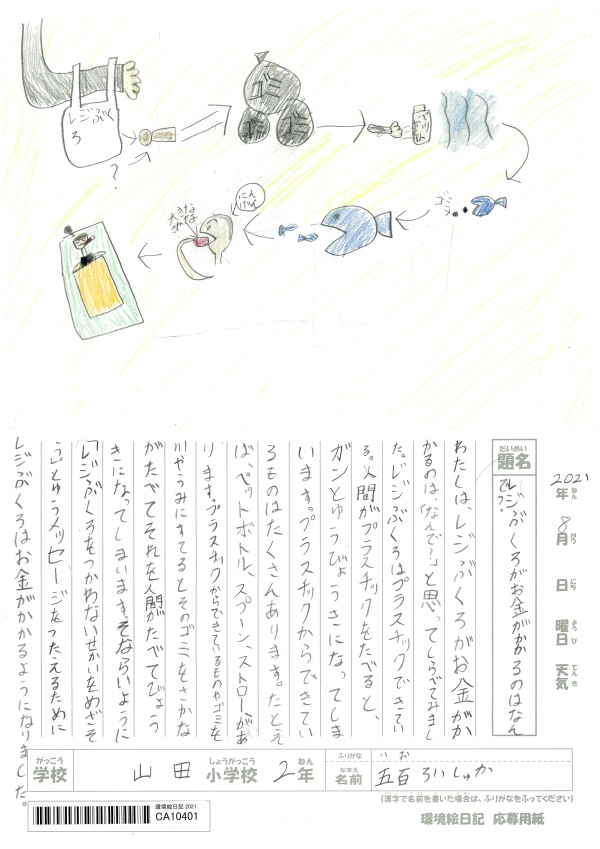 レジぶく
ろ
?
ゴミ
ゴミ
ゴミ
ゴミ
にん
げん
2021
年 ねん
8
月 がつ
日 にち
曜日 ようび
天気 てんき
題名 だいめい
レジぶくろがお金がかかるのはなん
で?。
わたしは、レジぶくろがお金がか
かるのは、「なんで?」と思ってしらべてみまし
た。レジぶくろはプラスチックでできてい
る。人間がプラスチックをたべると、
ガンとゆうびょうきになってしま
います。プラスチックからできてい
るものはたくさんあります。たとえ
ば、ペットボトル、スプーン、ストローがあ
ります。プラスチックからできているものやゴミを
川やうみにすてるとそのゴミをさかな
がたべてそれを人間がたべてびょう
きになってしまいます。そならいように
「レジぶくろをつかめないせかいをめざそ
う。」とゆうメッセージをつたえるために
レジぶくろはお金がかかるようになりました。
学校 がっこう
山田
小学校 しょうがっこう
2年 ねん
ふりがな
いお
名前 なまえ
五百ろいしゅか
(漢字で名前を書いた場合は、ふりがなをふってください)
環境絵日記 2021
CA10401
環境絵日記 応募用紙